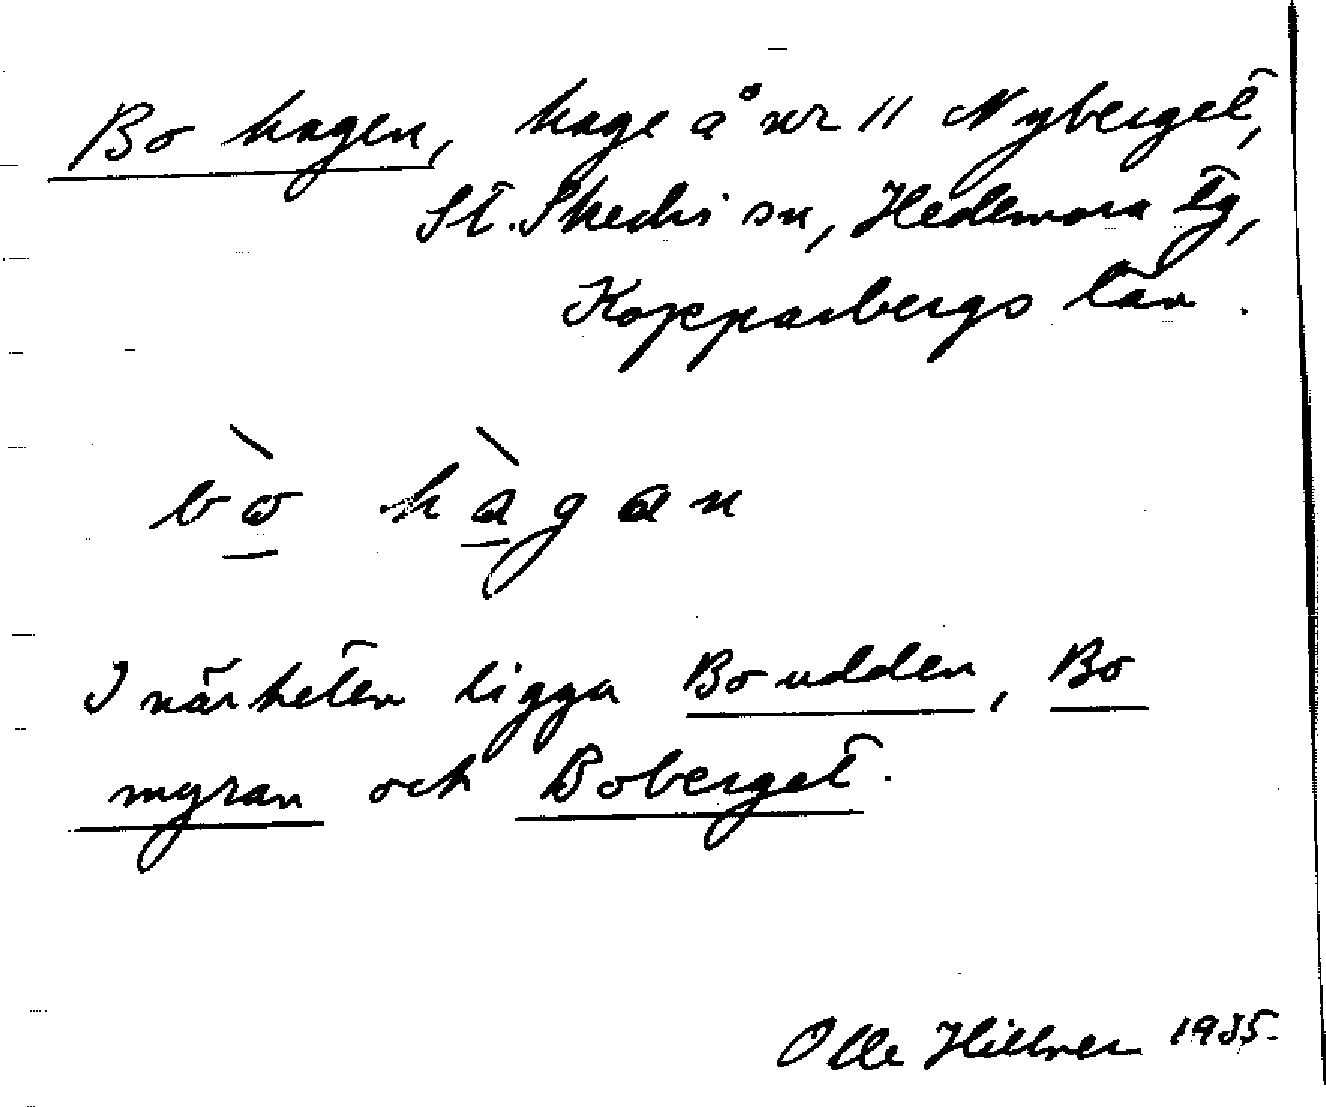 Bo hagen, hage å nr 11 Nyberget,
St. Skedvi sn, Hedemora tg,
Kopparbergs län.
bò hàgan
I närheten ligga Bo udden, Bo
myran och Boberget.
Olle Hillner 1935.